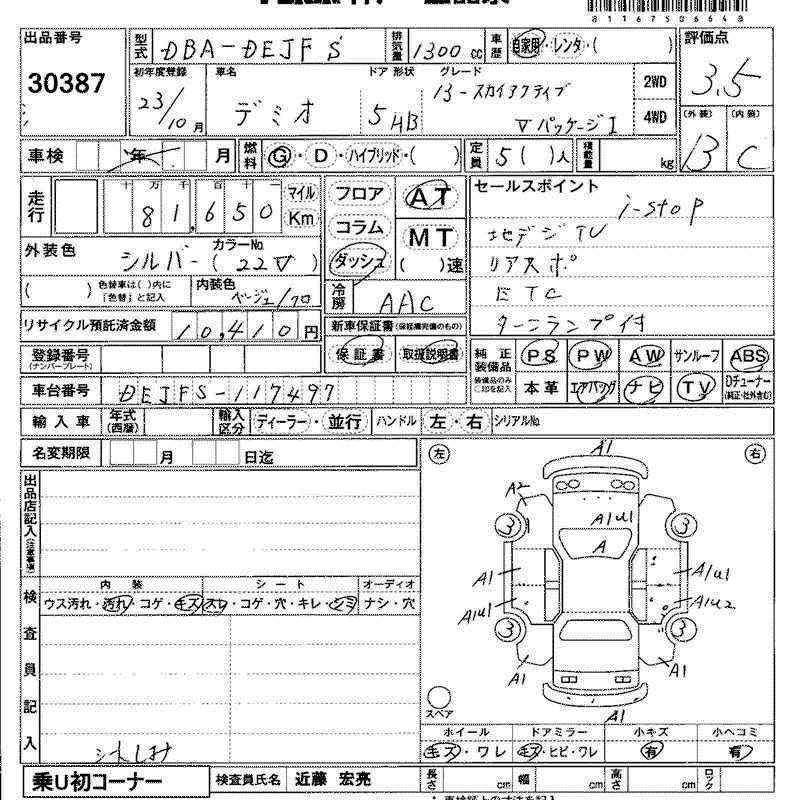 81167506648
出品番号 30387
型式 DBA-DEJFS 排気量 1300cc 車歴 自家用・レンタ・( )
評価点 3.5
初年度登録 23/10月 車名 デミオ ドア 形状 5HB グレード 13-スカイアクティブ
Vパッケージ I
2WD
4WD
(外装) B (内装) C
車検 年 月 燃料 G・D・ハイブリッド・( ) 定員 5( )人 積載量 kg
走行 十万千百十一 81,650 マイル Km
フロア
コラム
ダッシュ
AT
MT
( )速
セールスポイント
i-stop
地デジTV
リアスポ
ETC
ターニランプ付
外装色 シルバー カラーNo (22V)
( ) 色替車は( )内に「色替」と記入 内装色 ベージュ/クロ
冷房 AAC
リサイクル預託済金額 10,410円
新車保証書(保証継完備のもの)
保証書・取扱説明書
登録番号 (ナンバープレート)
車台番号 DEJFS-117497
純正装備品 PS PW AW サンルーフ ABS
装備品のみ○印を記入 本革 エアバッグ ナビ TV Dチューナー(純正・社外含む)
輸入車 年式(西暦) 輸入区分 ディーラー・並行 ハンドル 左・右 シリアルNo
名変期限 月 日迄
出品店記入(注意事項)
検査員記入
内装 シート オーディオ
ウス汚れ・汚れ・コゲ・キズ スレ・コゲ・穴・キレ・シミ ナシ・穴
シートしみ
左 右
A1
A2
A1U1
A
3 3
A1 A1U1
A1U1 A1U2
3 3
A1 A1
A1
スペア
ホイール ドアミラー 小キズ 小ヘコミ
キズ・ワレ キズ・ヒビ・ワレ 有 有
乗U初コーナー 検査員氏名 近藤 宏亮 長さ cm 幅 cm 高さ cm ロック